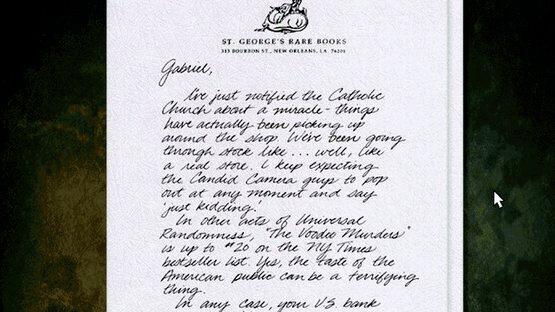 ST. GEORGE'S RARE BOOKS
315 BOURBON ST., NEW ORLEANS, LA. 76201
Gabriel,
I've just notified the Catholic
Church about a miracle - things
have actually been picking up
around the shop. We've been going
through stock like ... well, like
a real store. I keep expecting
the Candid Camera guys to pop
out at any moment and say
'just kidding.'
In other acts of Universal
Randomness, "The Voodoo Murders"
is up to #20 on the NY Times
bestseller list. Yes, the taste of the
American public can be a terrifying
thing.
In any case, your U.S. bank